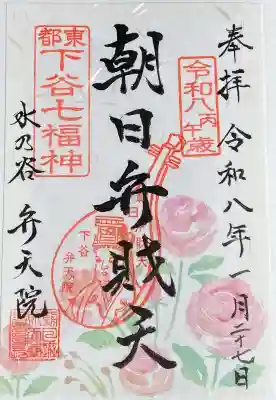 奉拝 令和八年一月二十七日
令和八丙午歳
朝日弁財天
東都
下谷七福神
下谷
弁天院
水乃谷 弁天院